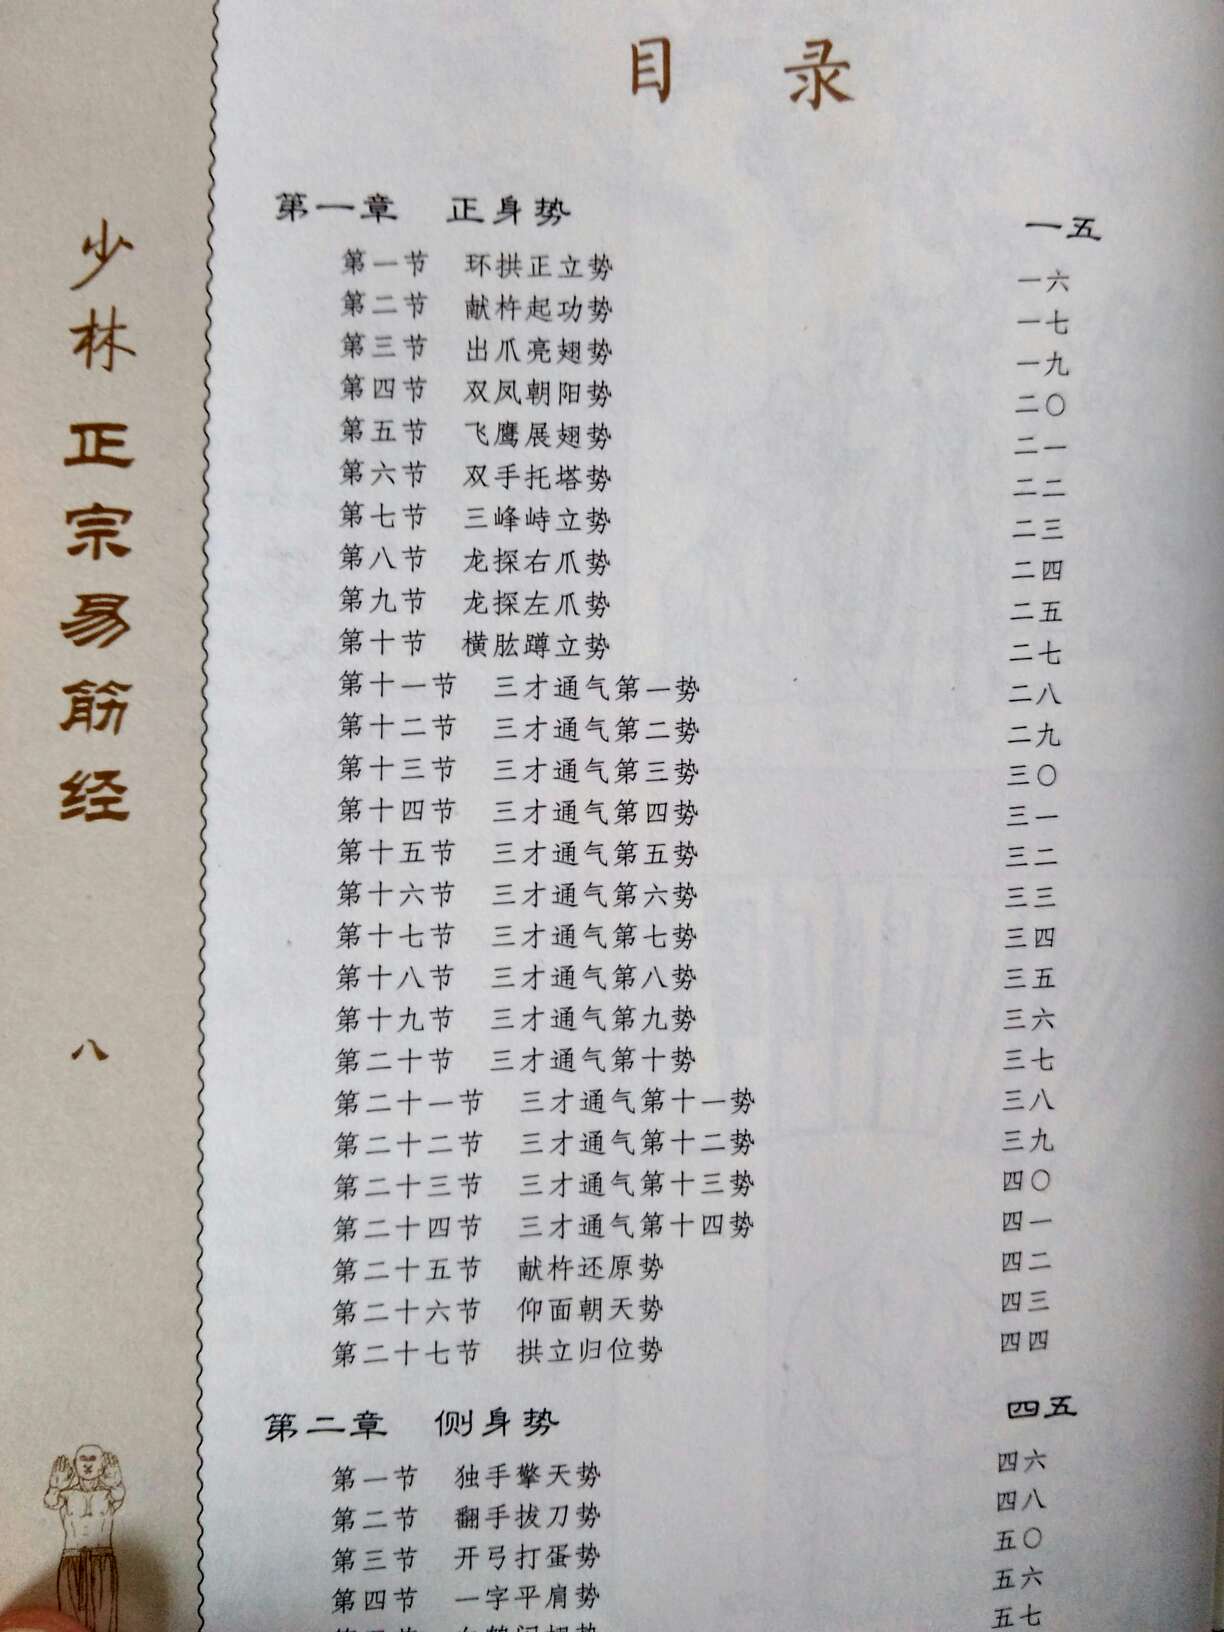 少林正宗易筋经
八
目 录
第一章 正身势 一五
第一节 环拱正立势 一六
第二节 献杵起功势 一七
第三节 出爪亮翅势 一九
第四节 双凤朝阳势 二〇
第五节 飞鹰展翅势 二一
第六节 双手托塔势 二二
第七节 三峰峙立势 二三
第八节 龙探右爪势 二四
第九节 龙探左爪势 二五
第十节 横肱蹲立势 二七
第十一节 三才通气第一势 二八
第十二节 三才通气第二势 二九
第十三节 三才通气第三势 三〇
第十四节 三才通气第四势 三一
第十五节 三才通气第五势 三二
第十六节 三才通气第六势 三三
第十七节 三才通气第七势 三四
第十八节 三才通气第八势 三五
第十九节 三才通气第九势 三六
第二十节 三才通气第十势 三七
第二十一节 三才通气第十一势 三八
第二十二节 三才通气第十二势 三九
第二十三节 三才通气第十三势 四〇
第二十四节 三才通气第十四势 四一
第二十五节 献杵还原势 四二
第二十六节 仰面朝天势 四三
第二十七节 拱立归位势 四四
第二章 侧身势 四五
第一节 独手擎天势 四六
第二节 翻手拔刀势 四八
第三节 开弓打蛋势 五〇
第四节 一字平肩势 五六
五七